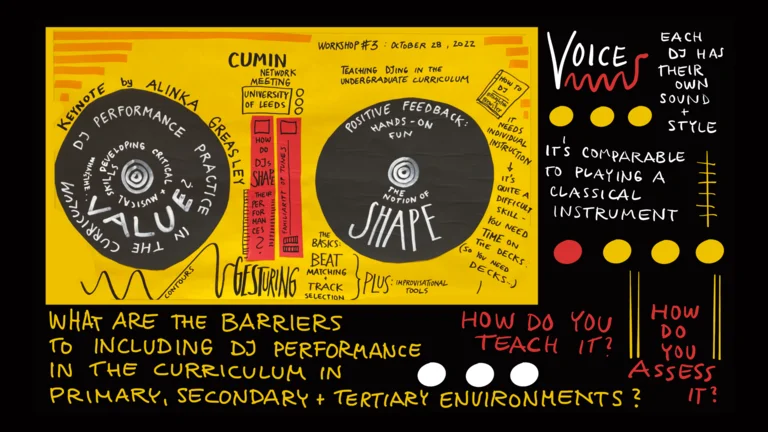 WORKSHOP #3 : OCTOBER 28, 2022
CUMIN
NETWORK
MEETING
UNIVERSITY
OF LEEDS
TEACHING DJING IN THE
UNDERGRADUATE CURRICULUM
KEYNOTE by ALINKA GREASLEY
DJ PERFORMANCE PRACTICE
IN THE CURRICULUM
DEVELOPING CRITICAL
+ MUSICAL
SKILLS
VALUE?
HOW
DO
DJs
SHAPE
THEIR
PER
FOR
MAN
CES
?
FAMILIARITY OF TUNES
POSITIVE FEEDBACK:
HANDS-ON
FUN
THE
NOTION OF
SHAPE
HOW TO
DJ
IT
NEEDS
INDIVIDUAL
INSTRUCTION
IT'S
QUITE A
DIFFICULT
SKILL:
YOU NEED
TIME ON
THE DECKS
(SO YOU NEED
DECKS..)
CONTOURS
GESTURING
THE
BASICS:
BEAT
MATCHING
+
TRACK
SELECTION
PLUS: IMPROVISATIONAL
TOOLS
VOICE
EACH
DJ HAS
THEIR
OWN
SOUND
+
STYLE
IT'S COMPARABLE
TO PLAYING A
CLASSICAL
INSTRUMENT
WHAT ARE THE BARRIERS
TO INCLUDING DJ PERFORMANCE
IN THE CURRICULUM IN
PRIMARY, SECONDARY + TERTIARY ENVIRONMENTS?
HOW DO YOU
TEACH IT?
HOW
DO
YOU
ASSESS
IT?